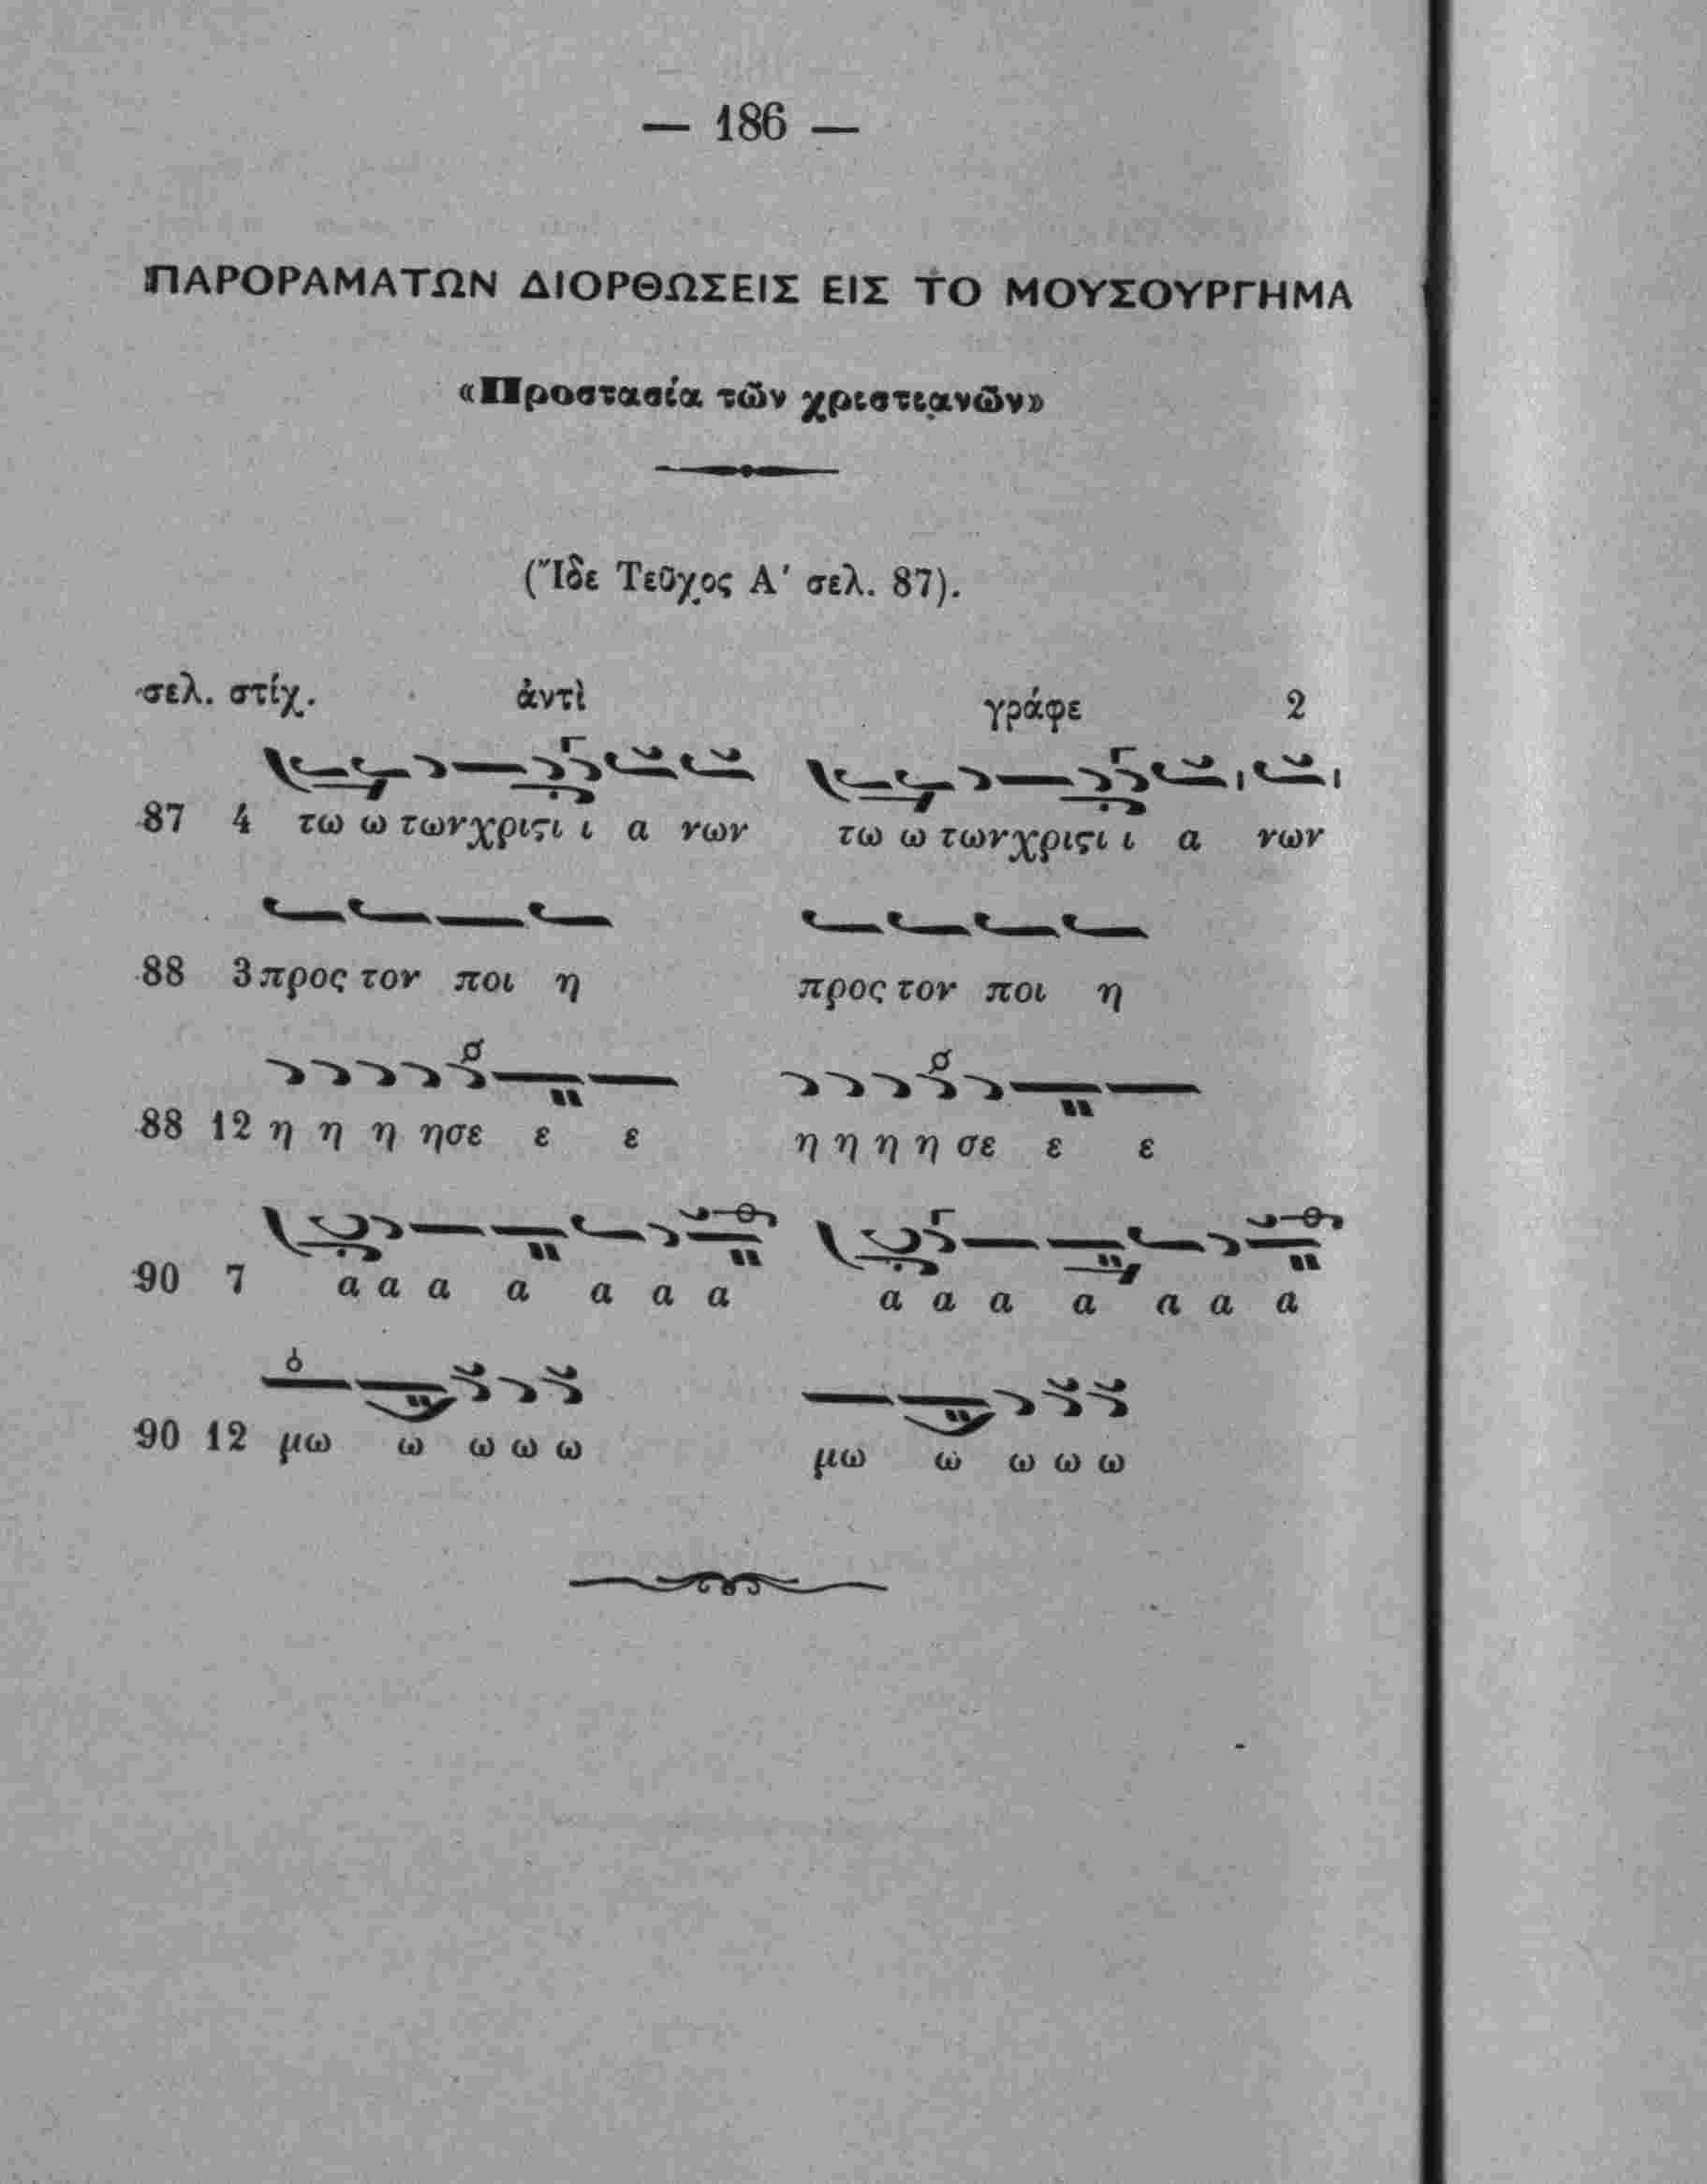 — 186 —
ΠΑΡΟΡΑΜΑΤΩΝ ΔΙΟΡΘΩΣΕΙΣ ΕΙΣ ΤΟ ΜΟΥΣΟΥΡΓΗΜΑ
«Προστασία τῶν χριστιανῶν»
(Ἴδε Τεῦχος Α' σελ. 87).
σελ. στίχ. ἀντὶ γράφε 2
87 4 τω ω τωνχριϛι ι α νων τω ω τωνχριϛι ι α νων
88 3 προς τον ποι η προς τον ποι η
88 12 η η η ησε ε ε η η η η σε ε ε
90 7 α α α α α α α α α α α α α α
90 12 μω ω ω ω ω μω ω ω ω ω